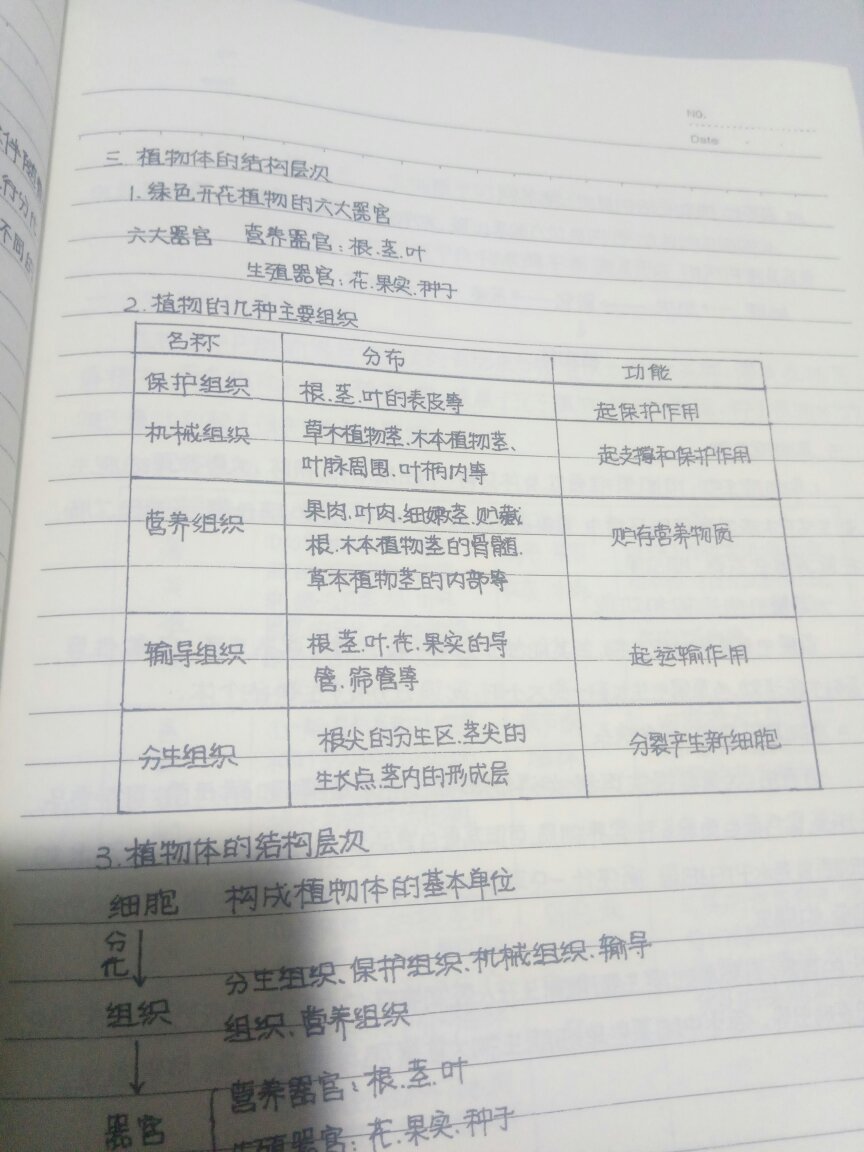 NO.
Date
三 植物体的结构层次
1. 绿色开花植物的六大器官
六大器官 营养器官:根.茎.叶
生殖器官:花.果实.种子
2. 植物的几种主要组织
名称 分布 功能
保护组织 根.茎.叶的表皮等 起保护作用
机械组织 草本植物茎.木本植物茎、 起支撑和保护作用
叶脉周围、叶柄内等
营养组织 果肉.叶肉.细嫩茎.贮藏 贮存营养物质
根.木本植物茎的骨髓.
草本植物茎的内部等
输导组织 根.茎.叶.花.果实的导 起运输作用
管.筛管等
分生组织 根尖的分生区.茎尖的 分裂产生新细胞
生长点.茎内的形成层
3. 植物体的结构层次
细胞 构成植物体的基本单位
分化
分生组织、保护组织、机械组织、输导
组织 组织、营养组织
营养器官:根.茎.叶
器官 生殖器官:花.果实.种子